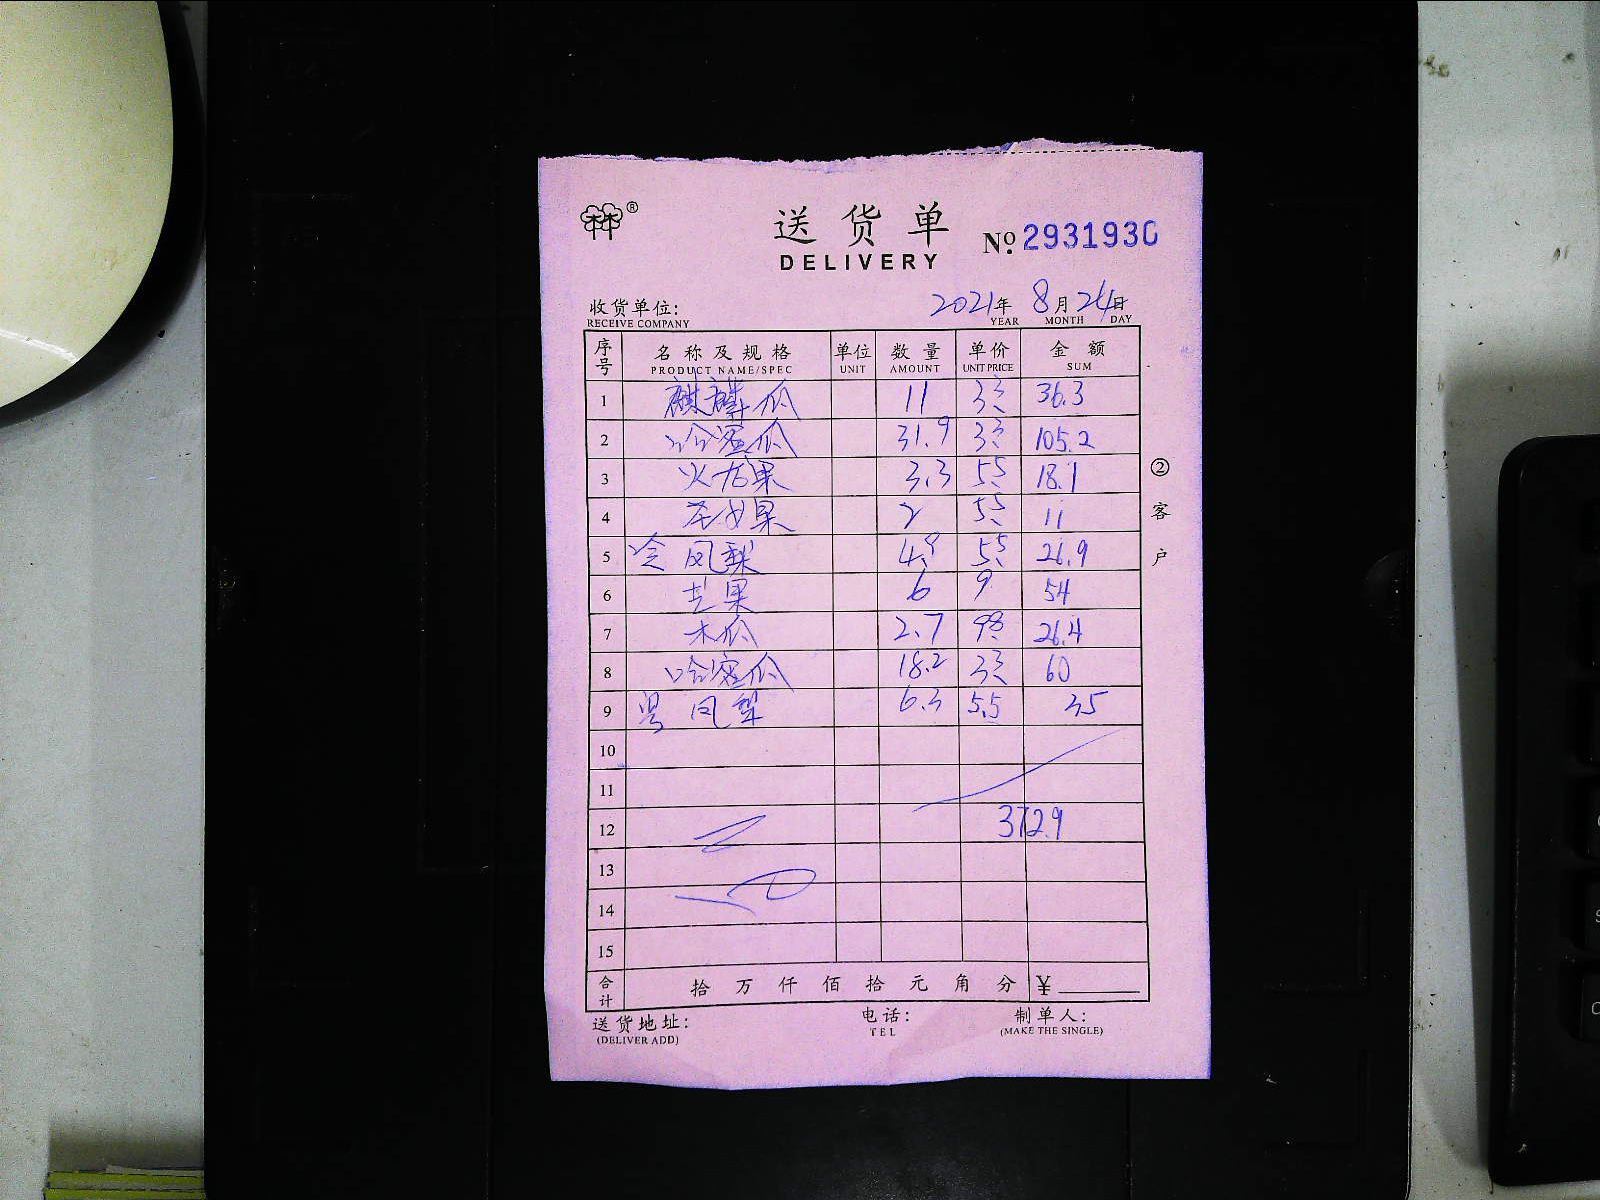 林林®
送货单
DELIVERY
No. 2931930
收货单位: 2021年 8月 24日
RECEIVE COMPANY YEAR MONTH DAY
序号 名称及规格 单位 数量 单价 金额
PRODUCT NAME/SPEC UNIT AMOUNT UNIT PRICE SUM
1 麒麟瓜 11 3.3 36.3
2 哈密瓜 31.9 3.3 105.2
3 火龙果 3.3 5.5 18.1
4 圣女果 2 5.5 11
5 凤梨 4.9 5.5 26.9
6 芒果 6 9 54
7 木瓜 2.7 9.8 26.4
8 哈密瓜 18.2 3.3 60
9 凤梨 6.3 5.5 35
10
11
12 372.9
13
14
15
合计 拾 万 仟 佰 拾 元 角 分 ¥
送货地址: 电话: 制单人:
(DELIVER ADD) TEL (MAKE THE SINGLE)
② 客户